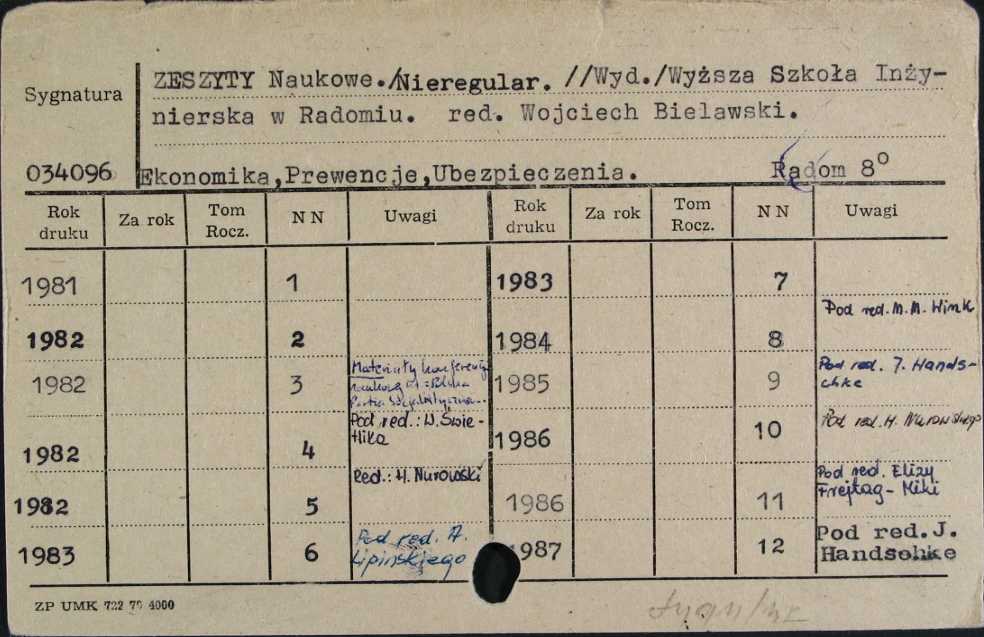 Sygnatura
ZESZYTY Naukowe./Nieregular. //Wyd./Wyższa Szkoła Inży-
nierska w Radomiu. red. Wojciech Bielawski.
034096 Ekonomika,Prewencje,Ubezpieczenia. Radom 8°
Rok druku Za rok Tom Rocz. NN Uwagi Rok druku Za rok Tom Rocz. NN Uwagi
1981 1
1982 2
1982 3 Materiały konferencji
naukowej
Partia
1982 4 Pod red.: W. Świe-
tlika
1982 5 Red.: H. Nurowski
1983 6 Pod red. A.
Lipińskiego
1983 7
1984 8 Pod red. M.M. Wink
1985 9 Pod red. J. Hands-
chke
1986 10 Pod red. H. Nurowskiego
1986 11 Pod red. Elizy
Frejtag-Miki
987 12 Pod red. J.
Handschke
ZP UMK 722 79 4000